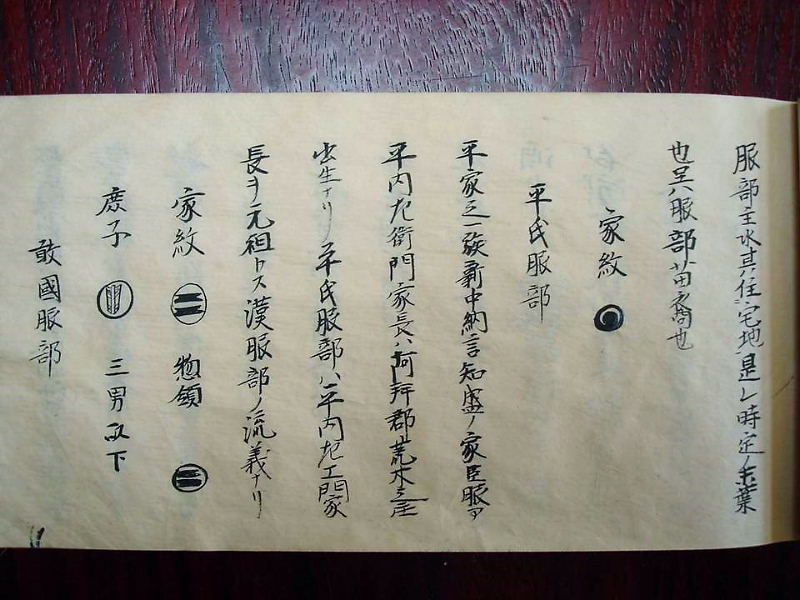 服部主水其住宅地是レ時定ノ末葉
也呉八服部苗裔也
家紋
平氏服部
平家之一族新中納言知盛ノ家臣服ア
平内左衛門家長ハ阿拝郡荒木之住
出生ナリ平氏服部ハ平内左エ門家
長ヲ元祖トス漢服部ノ流義ナリ
家紋 惣領
庶子 三男以下
敢國服部